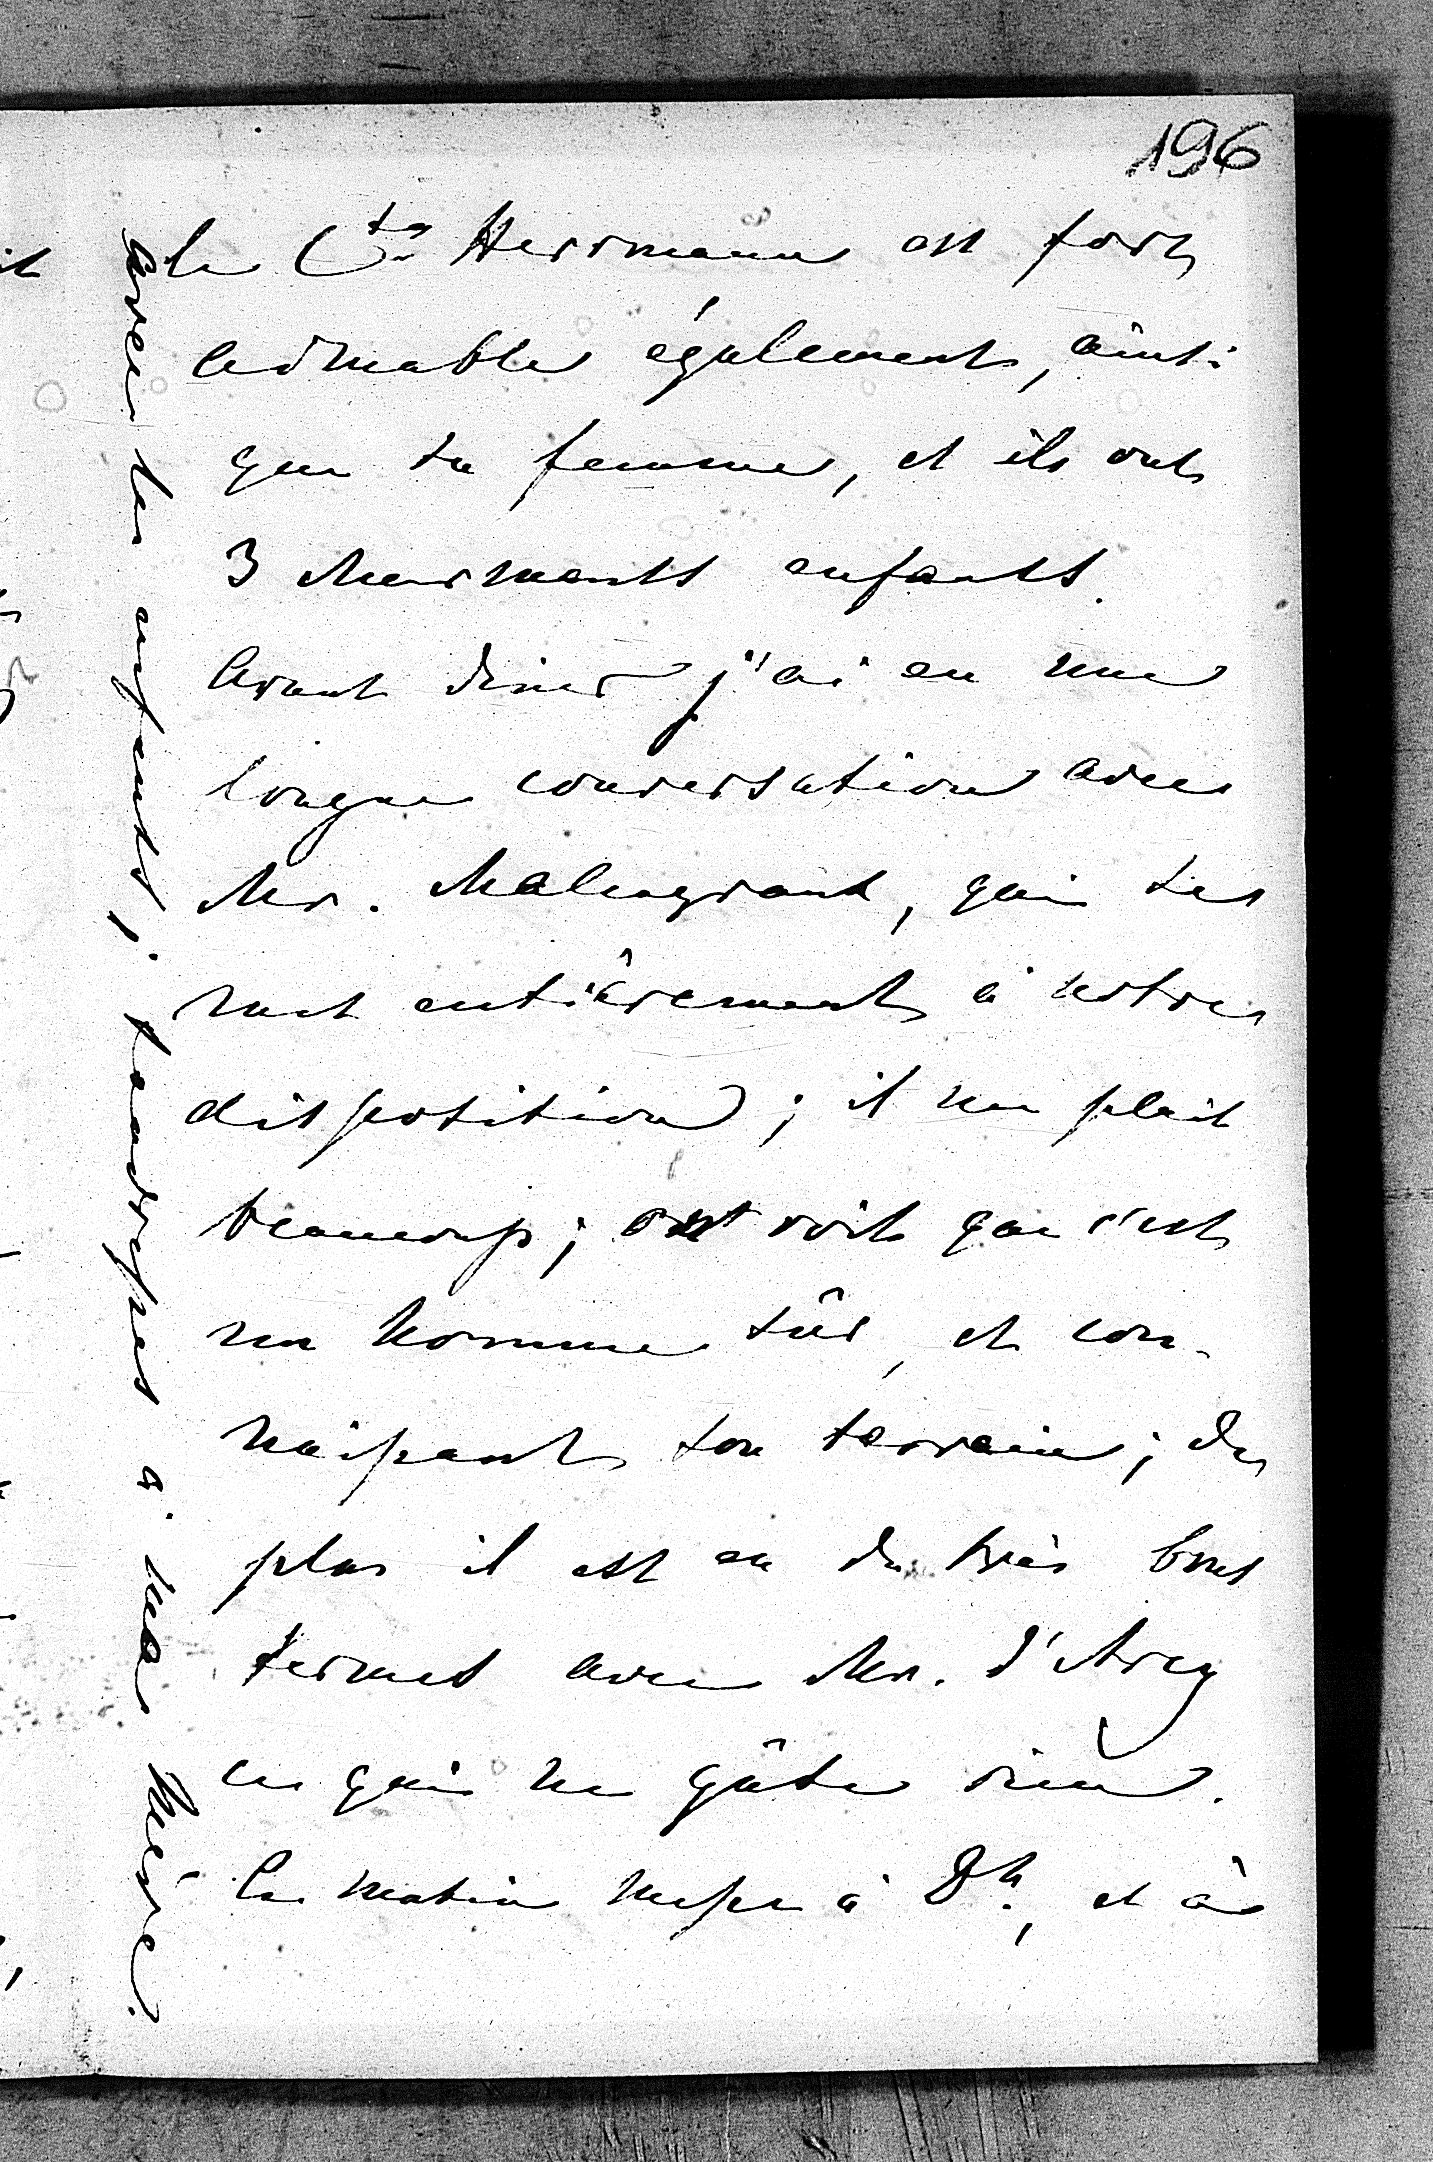 196
le Cte Herrmann est fort
aimable également, ainsi
que sa femme, et ils ont
3 charmants enfants.
Avant diner j'ai eu une
longue conversation avec
Mr. Malengrant, qui se
met entièrement à notre
disposition ; il me plait
beaucoup ; on voit que c'est
un homme sûr, et con-
naissant son terrain ; de
plus il est en de très bons
termes avec Mr. d'Arcy
ce qui ne gâte rien.
Ce matin messe à 8h, et à
avec les enfants, 
a ma Mère.